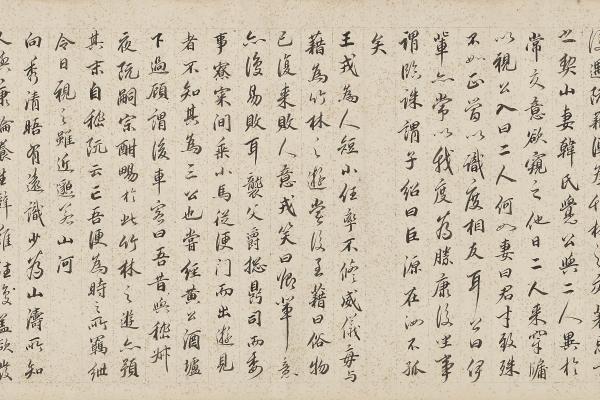 之契山妻韓氏覺公與二人異於
常交意欲窺之他日二人來穿牖
以視公入曰二人何如妻曰君才致殊
不如正當以識度相友耳公曰伊
輩亦常以我度為勝康後坐事
謂臨誅謂子紹曰巨源在汝不孤
矣
王戎為人短小任率不修威儀每與
籍為竹林之遊嘗後至籍曰俗物
已復來敗人意戎笑曰卿輩意
亦復易敗耳襲父爵總鼎司而委
事寮寀間乘小馬從便門而出遊見
者不知其為三公也嘗經黃公酒壚
下過顧謂後車客曰吾昔與嵇叔
夜阮嗣宗酣暢於此竹林之遊亦預
其末自嵇阮云亡吾便為時之所羈紲
今日視之雖近邈若山河
向秀清悟有遠識少為山濤所知
又與康論養生辭難往復蓋欲發